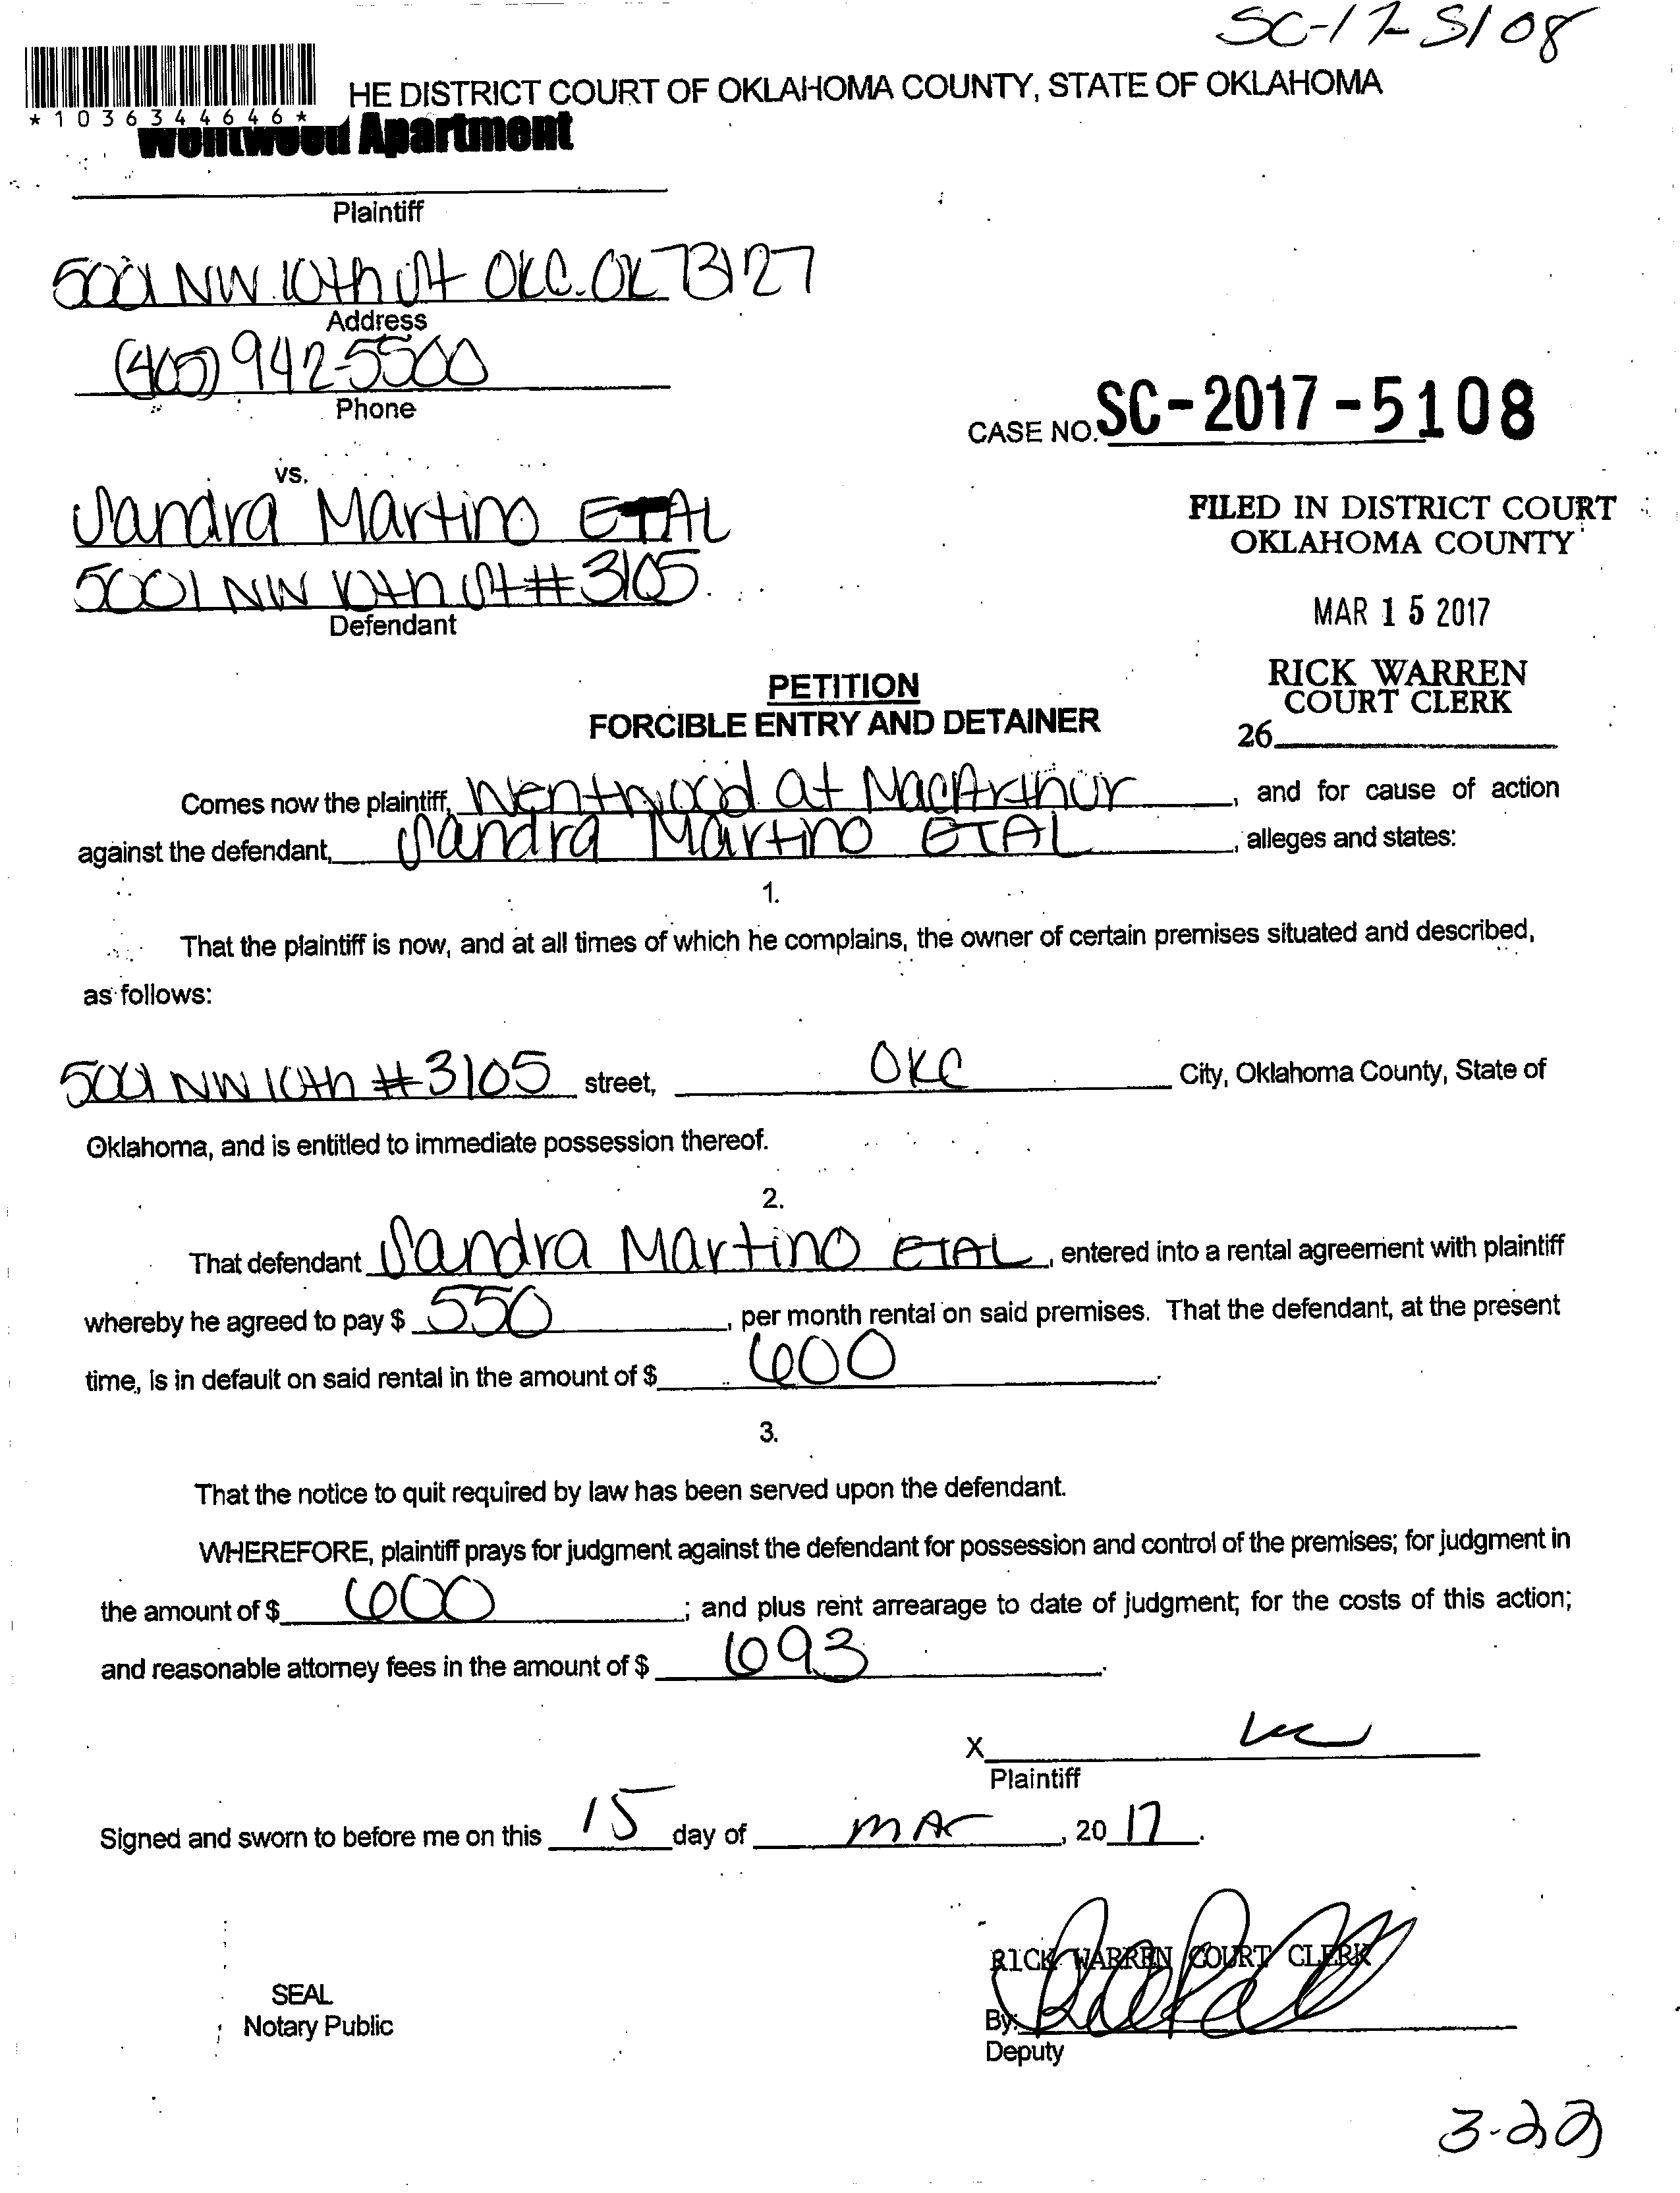 SC-17-5108
HE DISTRICT COURT OF OKLAHOMA COUNTY, STATE OF OKLAHOMA
*1036344646*
Wentwood Apartment
Plaintiff
5001 NW 10th St OKC. OK 73127
Address
(405) 942-5500
Phone
CASE NO. SC-2017-5108
vs.
Sandra Martino ETAL
FILED IN DISTRICT COURT
OKLAHOMA COUNTY
5001 NW 10th St #3105
Defendant
MAR 15 2017
RICK WARREN
COURT CLERK
26
PETITION
FORCIBLE ENTRY AND DETAINER
Comes now the plaintiff, Wentwood at MacArthur, and for cause of action
against the defendant, Sandra Martino ETAL, alleges and states:
1.
That the plaintiff is now, and at all times of which he complains, the owner of certain premises situated and described,
as follows:
5001 NW 10th #3105 street, OKC City, Oklahoma County, State of
Oklahoma, and is entitled to immediate possession thereof.
2.
That defendant Sandra Martino ETAL, entered into a rental agreement with plaintiff
whereby he agreed to pay $ 550, per month rental on said premises. That the defendant, at the present
time, is in default on said rental in the amount of $ 600.
3.
That the notice to quit required by law has been served upon the defendant.
WHEREFORE, plaintiff prays for judgment against the defendant for possession and control of the premises; for judgment in
the amount of $ 600; and plus rent arrearage to date of judgment; for the costs of this action;
and reasonable attorney fees in the amount of $ 693.
X
Plaintiff
Signed and sworn to before me on this 15 day of MAr, 2017.
RICK WARREN COURT CLERK
SEAL
Notary Public
By:
Deputy
3-22